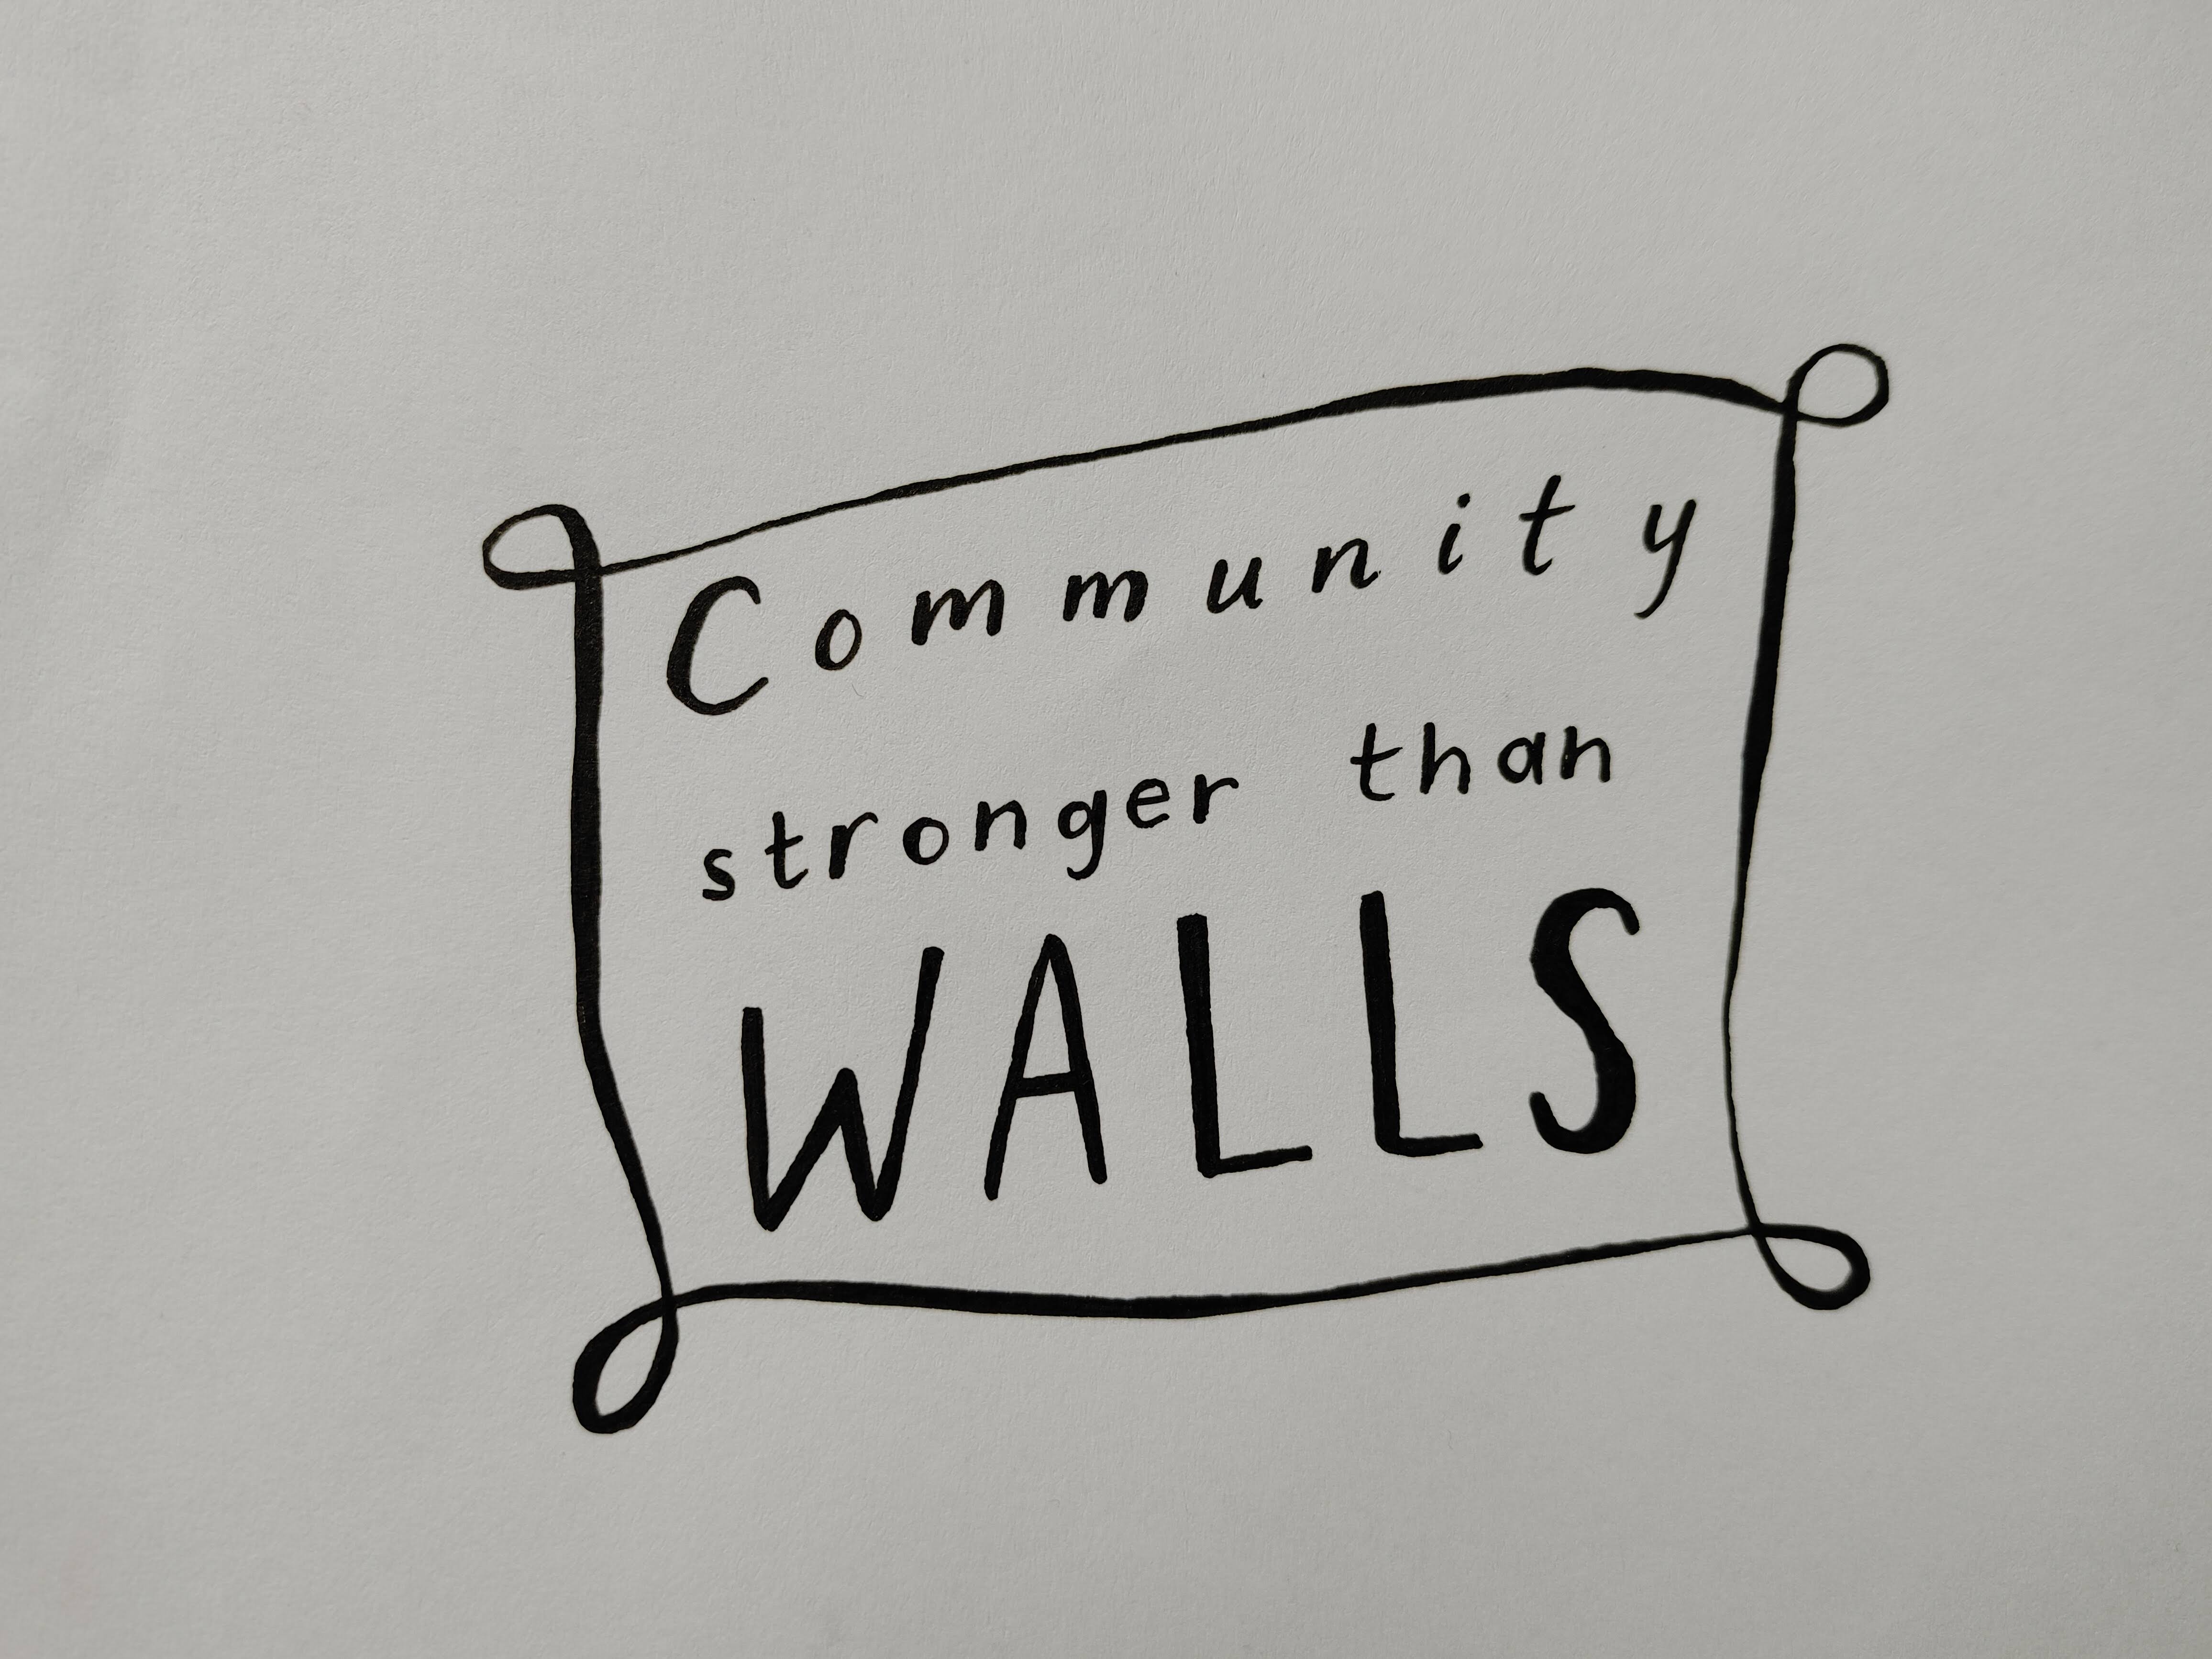 Community
stronger than
WALLS